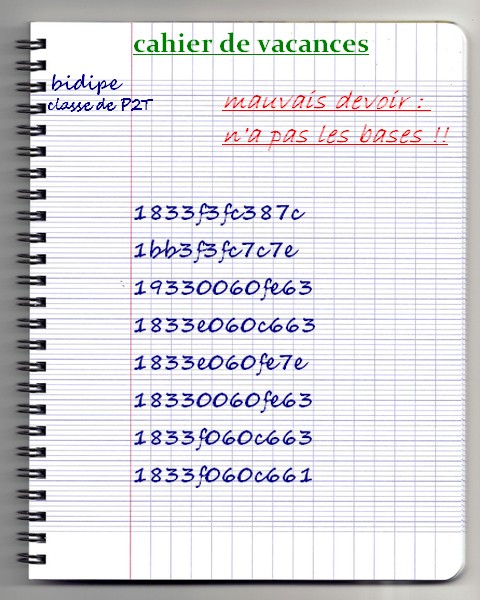 cahier de vacances
bidipe
classe de P2T
mauvais devoir :
n'a pas les bases !!
1833f3fc387c
1bb3f3fc7c7e
19330060fe63
1833e060c663
1833e060fe7e
18330060fe63
1833f060c663
1833f060c661